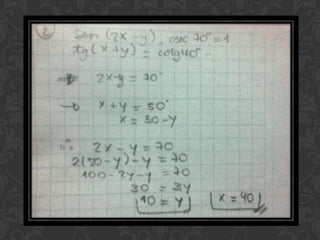 2
Sen (2x-y). csc 70° = 1
tg (x+y) = cotg 40°
→ 2x-y = 70°
→ x+y = 50°
x = 50-y
∴ 2x-y = 70
2(50-y)-y = 70
100-2y-y = 70
30 = 3y
10 = y x = 40